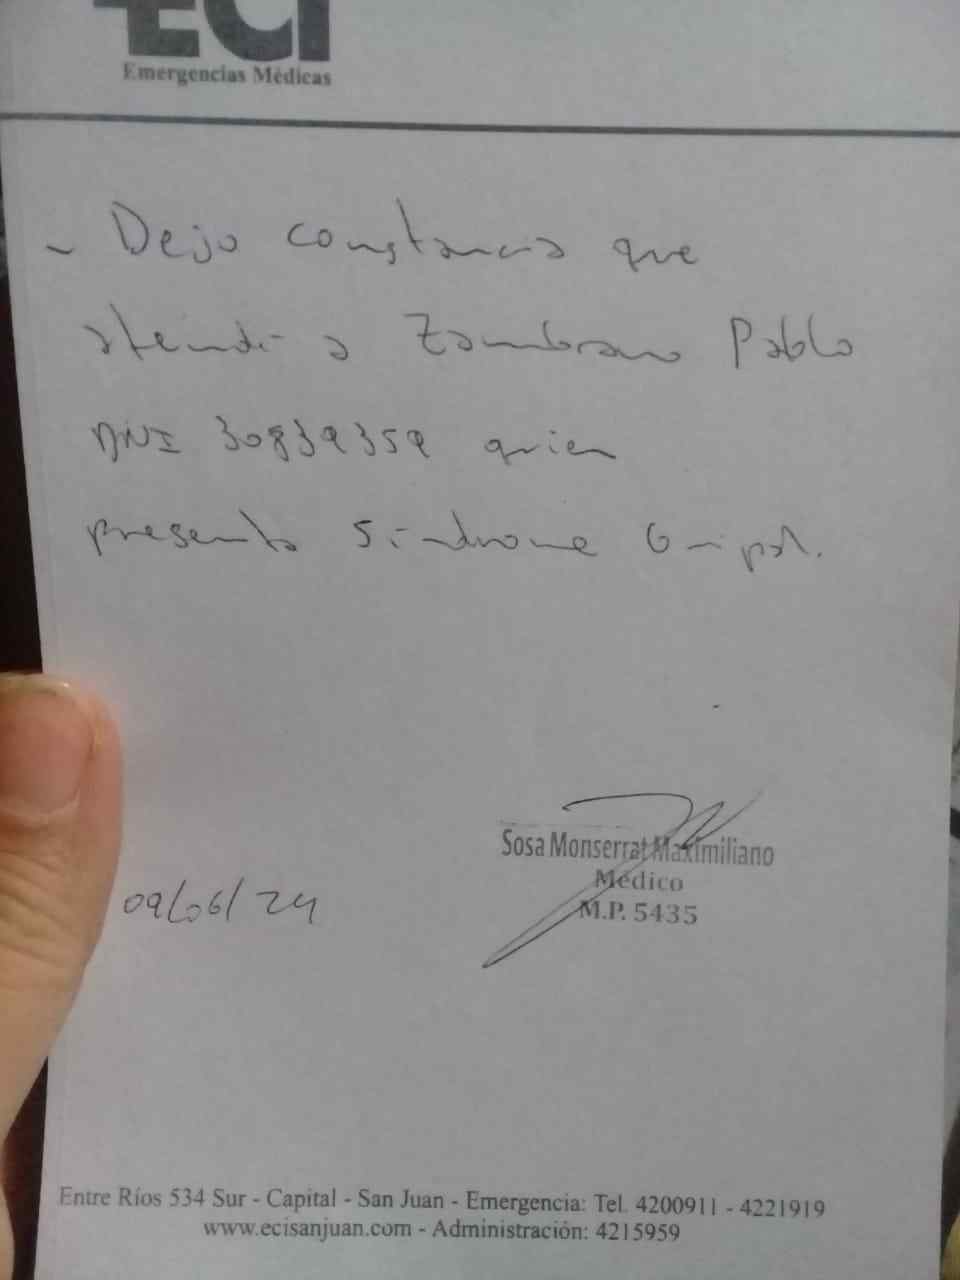 ECI
Emergencias Médicas
- Dejo constancia que
atendi a Zambrano Pablo
DNI 30839359 quien
presento Síndrome Gripal.
Sosa Monserrat Maximiliano
Médico
M.P. 5435
09/06/24
Entre Ríos 534 Sur - Capital - San Juan - Emergencia: Tel. 4200911 - 4221919
www.ecisanjuan.com - Administración: 4215959